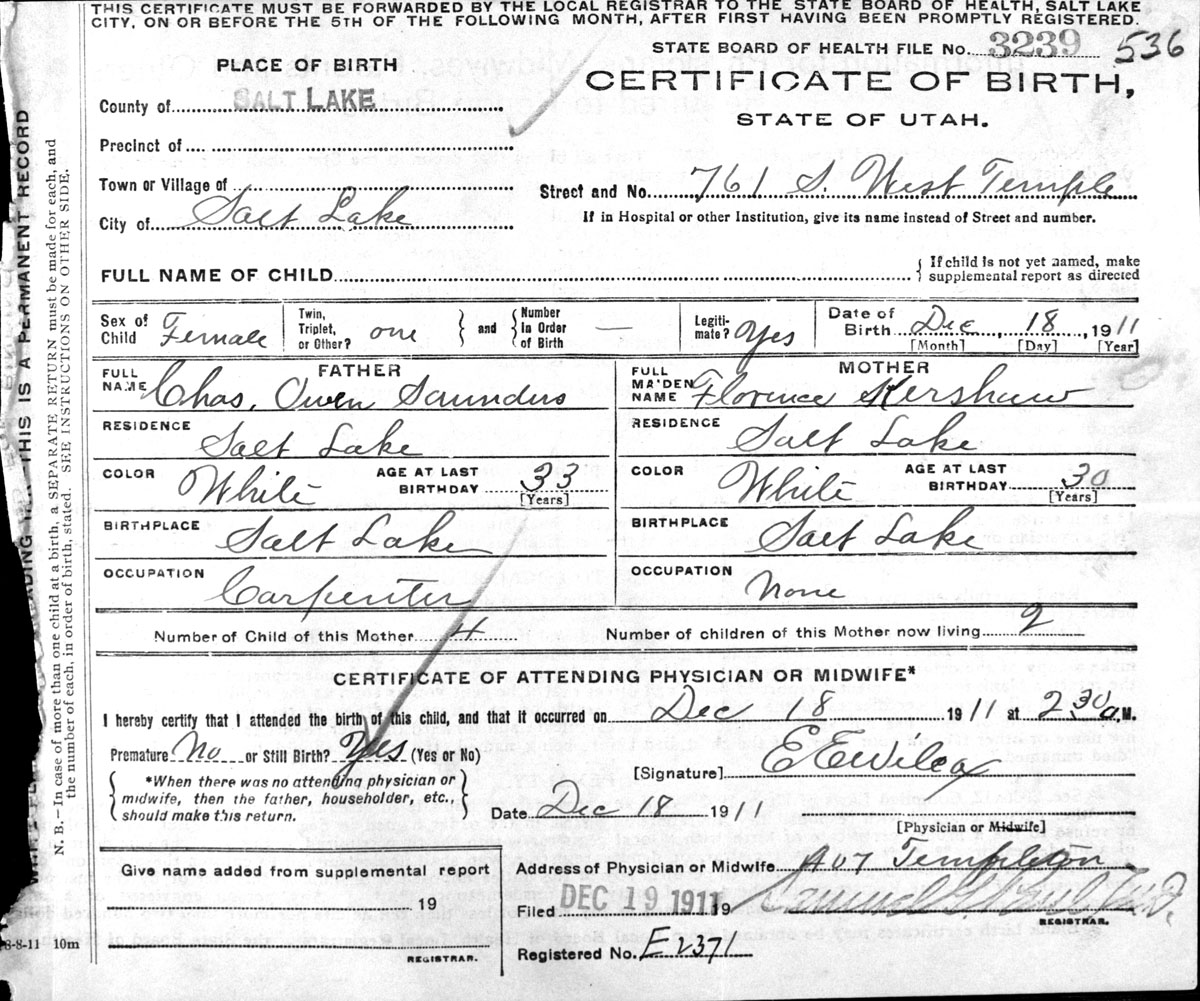 THIS CERTIFICATE MUST BE FORWARDED BY THE LOCAL REGISTRAR TO THE STATE BOARD OF HEALTH, SALT LAKE
CITY, ON OR BEFORE THE 5TH OF THE FOLLOWING MONTH, AFTER FIRST HAVING BEEN PROMPTLY REGISTERED.
STATE BOARD OF HEALTH FILE No. 3239 536
PLACE OF BIRTH
CERTIFICATE OF BIRTH,
STATE OF UTAH.
County of SALT LAKE
Precinct of
Town or Village of
City of Salt Lake
Street and No. 761 S. West Temple
If in Hospital or other Institution, give its name instead of Street and number.
FULL NAME OF CHILD
If child is not yet named, make
supplemental report as directed
Sex of Child Female
Twin, Triplet, or Other? one
and Number In Order of Birth —
Legiti-mate? Yes
Date of Birth Dec, 18, 1911
[Month] [Day] [Year]
FATHER
FULL NAME Chas. Owen Saunders
RESIDENCE Salt Lake
COLOR White AGE AT LAST BIRTHDAY 33
[Years]
BIRTHPLACE Salt Lake
OCCUPATION Carpenter
MOTHER
FULL MAIDEN NAME Florence Kershaw
RESIDENCE Salt Lake
COLOR White AGE AT LAST BIRTHDAY 30
[Years]
BIRTHPLACE Salt Lake
OCCUPATION None
Number of Child of this Mother 4 Number of children of this Mother now living 2
CERTIFICATE OF ATTENDING PHYSICIAN OR MIDWIFE*
I hereby certify that I attended the birth of this child, and that it occurred on Dec 18 1911 at 2 30 a.M.
Premature No or Still Birth? Yes (Yes or No)
*When there was no attending physician or
midwife, then the father, householder, etc.,
should make this return.
[Signature] E E Wilcox
Date Dec 18 1911
[Physician or Midwife]
Give name added from supplemental report
19
REGISTRAR.
Address of Physician or Midwife 407 Templeton
Filed DEC 19 1911 19
Samuel G. Paul M.D.
REGISTRAR.
Registered No. E2371
8-8-11 10m
THIS IS A PERMANENT RECORD
N. B.—In case of more than one child at a birth, a SEPARATE RETURN must be made for each, and
the number of each, in order of birth, stated. SEE INSTRUCTIONS ON OTHER SIDE.